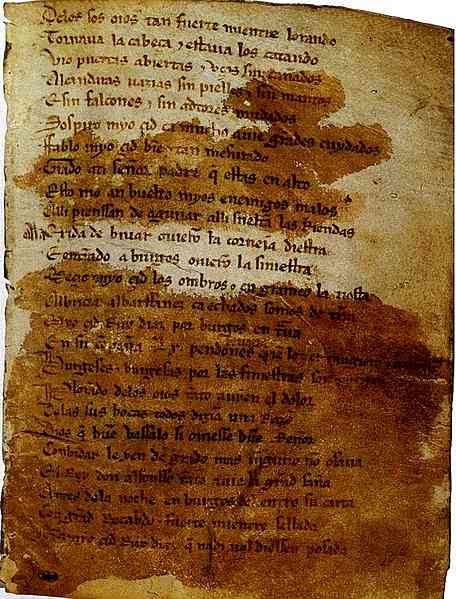 Delos sos oios tan fuerte mientre lorando
Tornava la cabeça ⁊ estava los catando
Vio puertas abiertas ⁊ vços sin cañados
Alcandaras vazias sin pielles ⁊ sin mantos
E sin falcones ⁊ sin adtores mudados
Sospiro myo çid ca mucho auie grandes cuydados
Fablo myo çid bien ⁊ tan mesurado
Grado ati señor padre q estas en alto
Esto me an buelto myos enemigos malos
Alli pienssan de aguiiar alli sueltan las Riendas
Ala exida de biuar ouieron la corneia diestra
E entrando a burgos ouieron la siniestra
Meçio myo çid los ombros ⁊ en grameo la tiesta
Albricia albarffanez ca echados somos de tierra
Myo çid Ruy diaz por burgos en traua
En su conpaña Lx pendones
Burgeses ⁊ burgesas por las finiestras son
Plorando delos oios tanto auyen el dolor
Delas sus bocas todos dizian una Razon
Dios q buen vassalo si ouiesse buen Señor
Conbidar le yen de grado mas ninguno no osaua
El Rey don alfonsso tanto auie la grand saña
Antes dela noche en burgos del entro su carta
Con grand Recabdo ⁊ fuerte mientre sellada
Que a myo çid Ruy diaz q nadi nol diessen posada